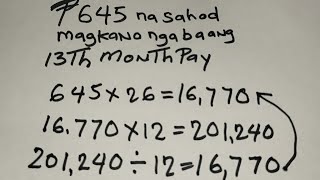 ₱645 na sahod
magkano nga ba ang
13Th MonTh Pay
645x26=16,770
16.770x12=201,240
201,240÷12=16,770